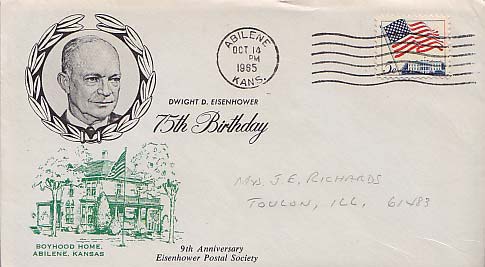 ABILENE
OCT 14
PM
1965
KANS.
DWIGHT D. EISENHOWER
75th Birthday
Mrs. J. E. RICHARDS
TOULON, ILL. 61483
BOYHOOD HOME,
ABILENE, KANSAS
9th Anniversary
Eisenhower Postal Society